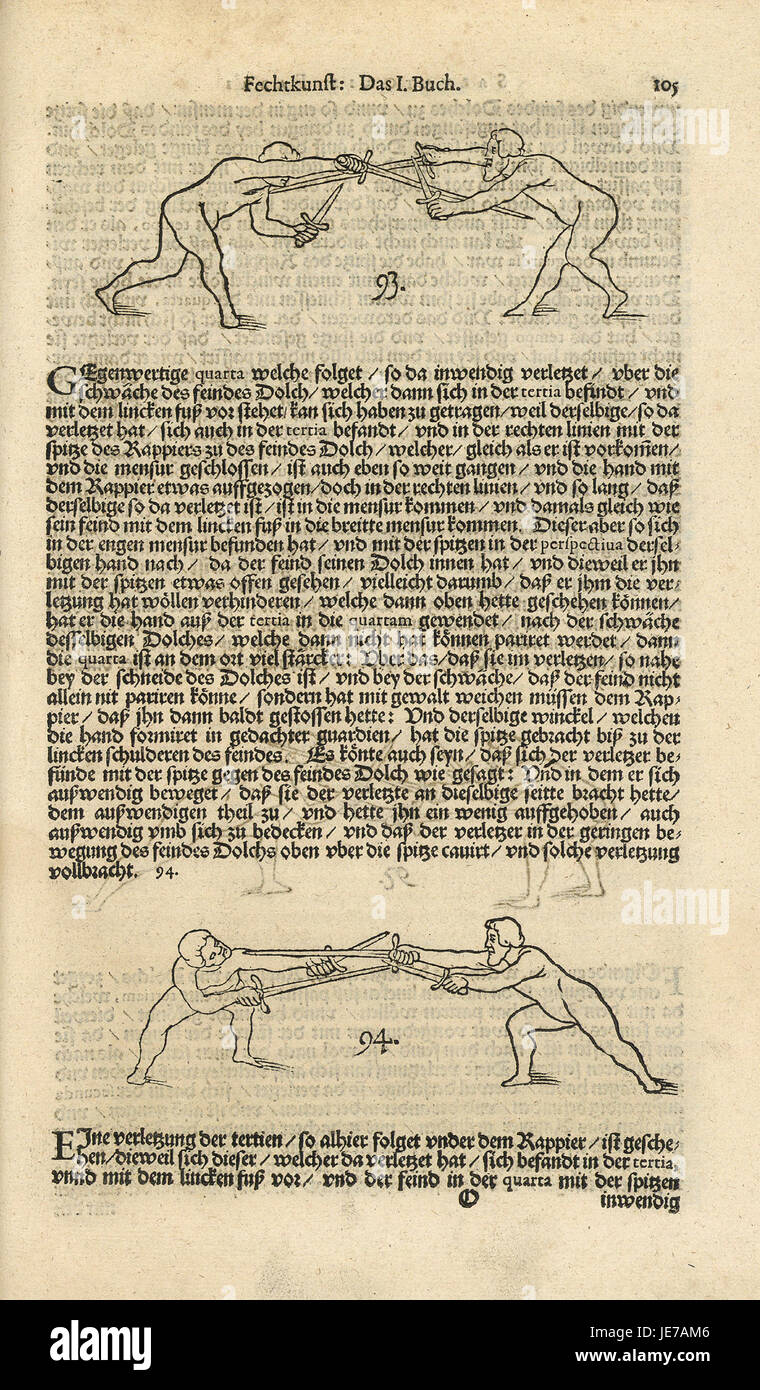 Fechtkunst: Das I. Buch. 105
93.
GEgenwertige quarta welche folget / so da inwendig verletzet / vber die
schwäche des feindes Dolch / welcher dann sich in der tertia befindt / vnd
mit dem lincken fuß vor stehet / kan sich haben zu getragen / weil derselbige / so da
verletzet hat / sich auch in der tertia befandt / vnd in der rechten linien mit der
spitze des Rappiers zu des feindes Dolch / welcher / gleich als er ist vorkom̃en /
vnd die mensur geschlossen / ist auch eben so weit gangen / vnd die hand mit
dem Rappier etwas auffgezogen / doch in der rechten linien / vnd so lang / daß
derselbige so da verletzet ist / ist in die mensur kommen / vnd damals gleich wie
sein feind mit dem lincken fuß in die breitte mensur kommen. Dieser aber so sich
in der engen mensur befunden hat / vnd mit der spitzen in der perspectiua dersel-
bigen hand nach / da der feind seinen Dolch innen hat / vnd dieweil er jhn
mit der spitzen etwas offen gesehen / vielleicht darumb / daß er jhm die ver-
letzung hat wöllen verhinderen / welche dann oben hette geschehen können /
hat er die hand auß der tertia in die quartam gewendet / nach der schwäche
desselbigen Dolches / welche dann nicht hat können pariret werdet / dann
die quarta ist an dem ort viel stärcker: Vber das / daß sie im verletzen / so nahe
bey der schneide des Dolches ist / vnd bey der schwäche / daß der feind nicht
allein nit pariren könne / sondern hat mit gewalt weichen müssen dem Rap-
pier / daß jhn dann baldt gestossen hette: Vnd derselbige winckel / welchen
die hand formiret in gedachter guardien / hat die spitze gebracht biß zu der
lincken schulderen des feindes. Es könte auch seyn / daß sich der verletzer be-
fünde mit der spitze gegen des feindes Dolch wie gesagt: Vnd in dem er sich
außwendig beweget / daß sie der verletzte an dieselbige seitte bracht hette /
dem außwendigen theil zu / vnd hette jhn ein wenig auffgehoben / auch
außwendig vmb sich zu bedecken / vnd daß der verletzer in der geringen be-
wegung des feindes Dolchs oben vber die spitze cauirt / vnd solche verletzung
vollbracht. 94.
94.
EJne verletzung der tertien / so alhier folget vnder dem Rappier / ist gesche-
hen / dieweil sich dieser / welcher da verletzet hat / sich befandt in der tertia,
vnnd mit dem lincken fuß vor / vnd der feind in der quarta mit der spitzen
O inwendig
alamy
alamy
alamy
alamy
alamy
alamy
alamy
Image ID: JE7AM6
www.alamy.com